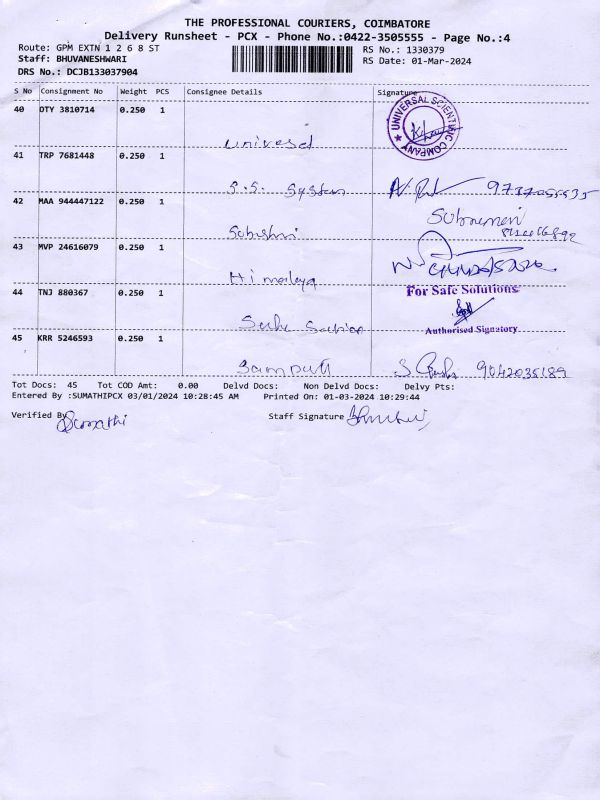 THE PROFESSIONAL COURIERS, COIMBATORE
Delivery Runsheet - PCX - Phone No.:0422-3505555 - Page No.:4
Route: GPM EXTN 1 2 6 8 ST
RS No.: 1330379
Staff: BHUVANESHWARI
RS Date: 01-Mar-2024
DRS No.: DCJB133037904
S No Consignment No Weight PCS Consignee Details Signature
40 DTY 3810714 0.250 1
UNIVERSAL SCIENTIFIC COMPANY
41 TRP 7681448 0.250 1
S.S. System
42 MAA 944447122 0.250 1
43 MVP 24616079 0.250 1
Himalaya
44 TNJ 880367 0.250 1
For Safe Solutions
Authorised Signatory
45 KRR 5246593 0.250 1
9042035189
Tot Docs: 45 Tot COD Amt: 0.00 Delvd Docs: Non Delvd Docs: Delvy Pts:
Entered By :SUMATHIPCX 03/01/2024 10:28:45 AM Printed On: 01-03-2024 10:29:44
Verified By Sumathi
Staff Signature